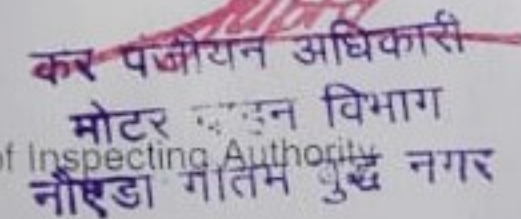 कर पंजीयन अधिकारी
मोटर वाहन विभाग
of Inspecting Authority
नौएडा गौतम बुद्ध नगर